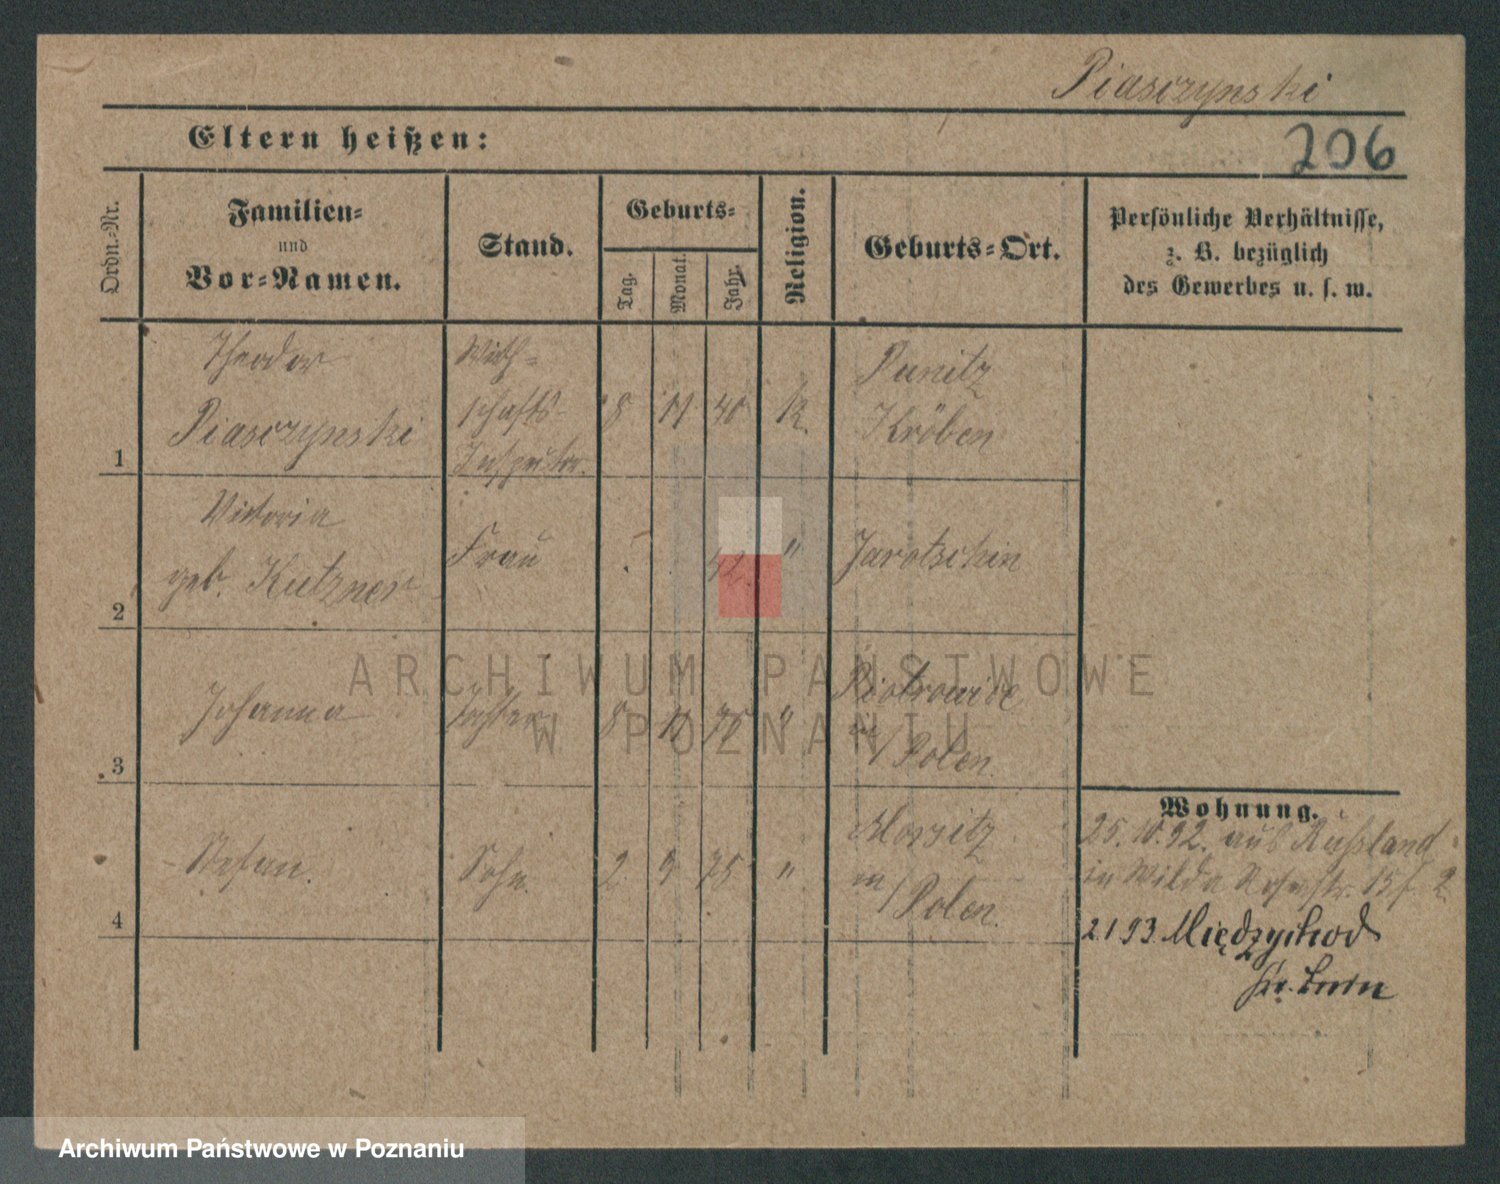 Piasczynski
Eltern heißen:
206
Ordn.-Nr.
Familien-
und
Vor-Namen.
Stand.
Geburts-
Tag.
Monat.
Jahr.
Religion.
Geburts-Ort.
Persönliche Verhältnisse,
z. B. bezüglich
des Gewerbes u. s. w.
1
Theodor
Piasczynski
Wirth-
schafts-
Inspektor.
8 11 40
k.
Punitz
Kröben
2
Victoria
geb. Kutzner
Frau
? 42.
"
Jarotschin
3
Johanna
Tochter
8 11 76
"
Piotrowice
in
Polen.
4
Stefan.
Sohn.
2 9 78
"
in
Polen.
Wohnung.
25.10.92. aus Russland
in Wilda 15 f 2
2193 Międzychod
ARCHIWUM PAŃSTWOWE
W POZNANIU
Archiwum Państwowe w Poznaniu